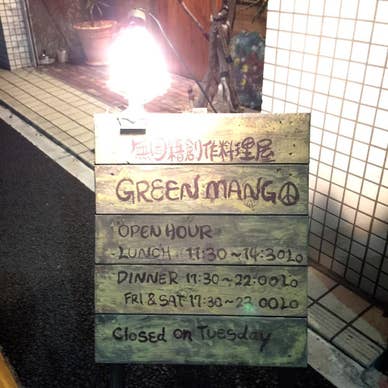 無国籍創作料理屋
GREEN MANG☮
OPEN HOUR
LUNCH 11:30~14:30LO
DINNER 17:30~22:00LO
FRI & SAT 17:30~23:00LO
Closed on Tuesday